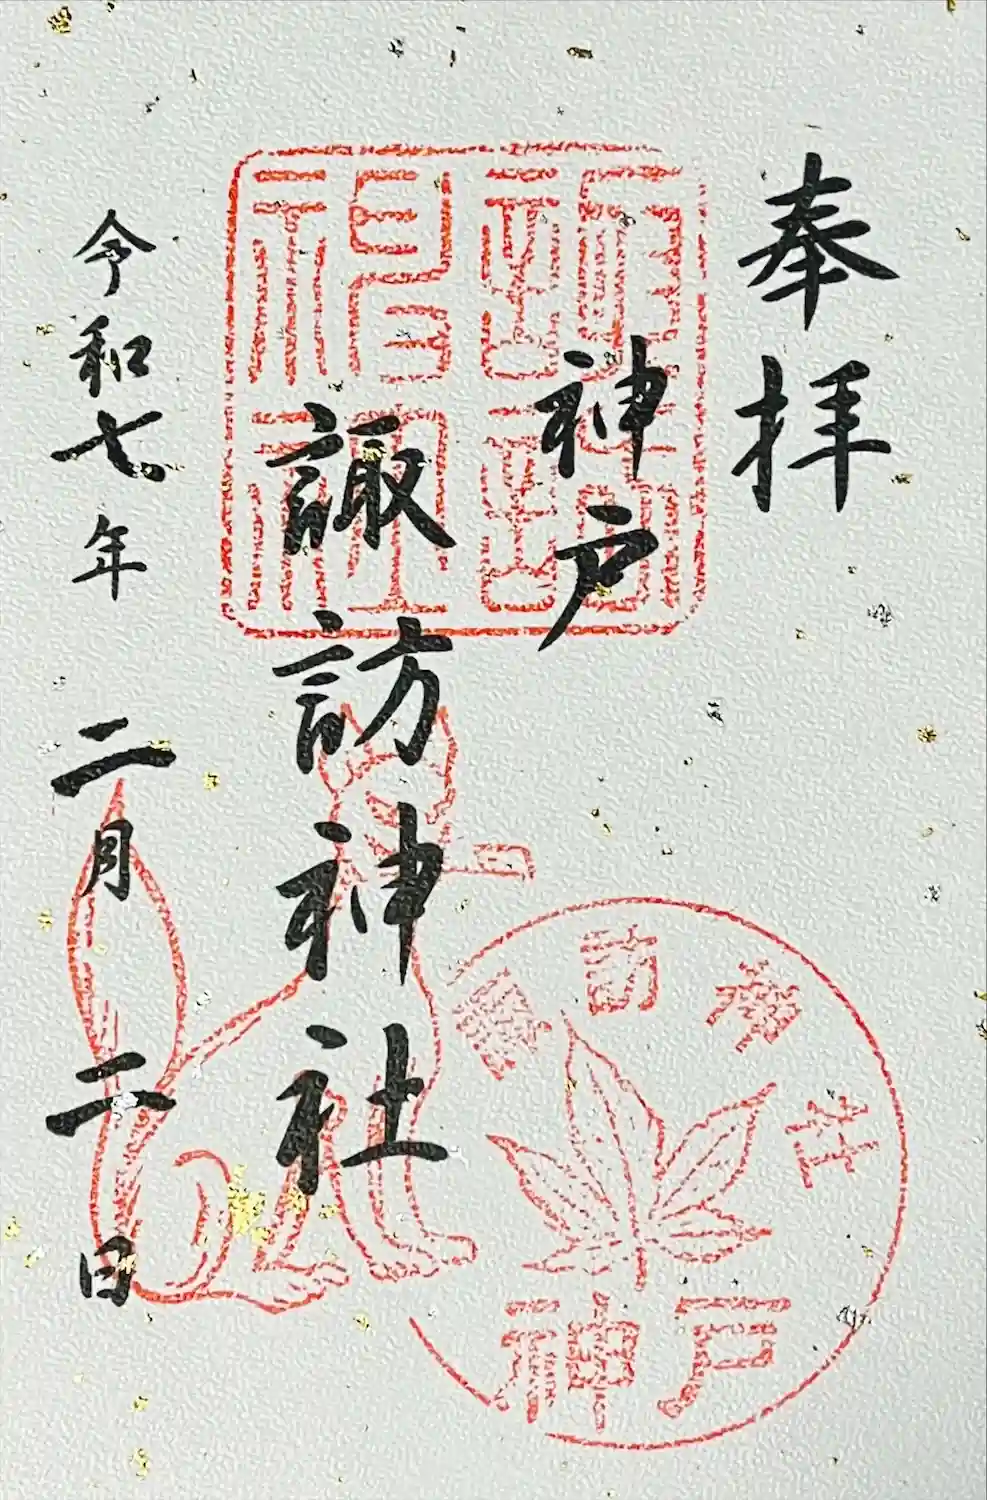 奉拝
神戸
諏訪神社
令和七年二月二日
諏訪神社
神戸